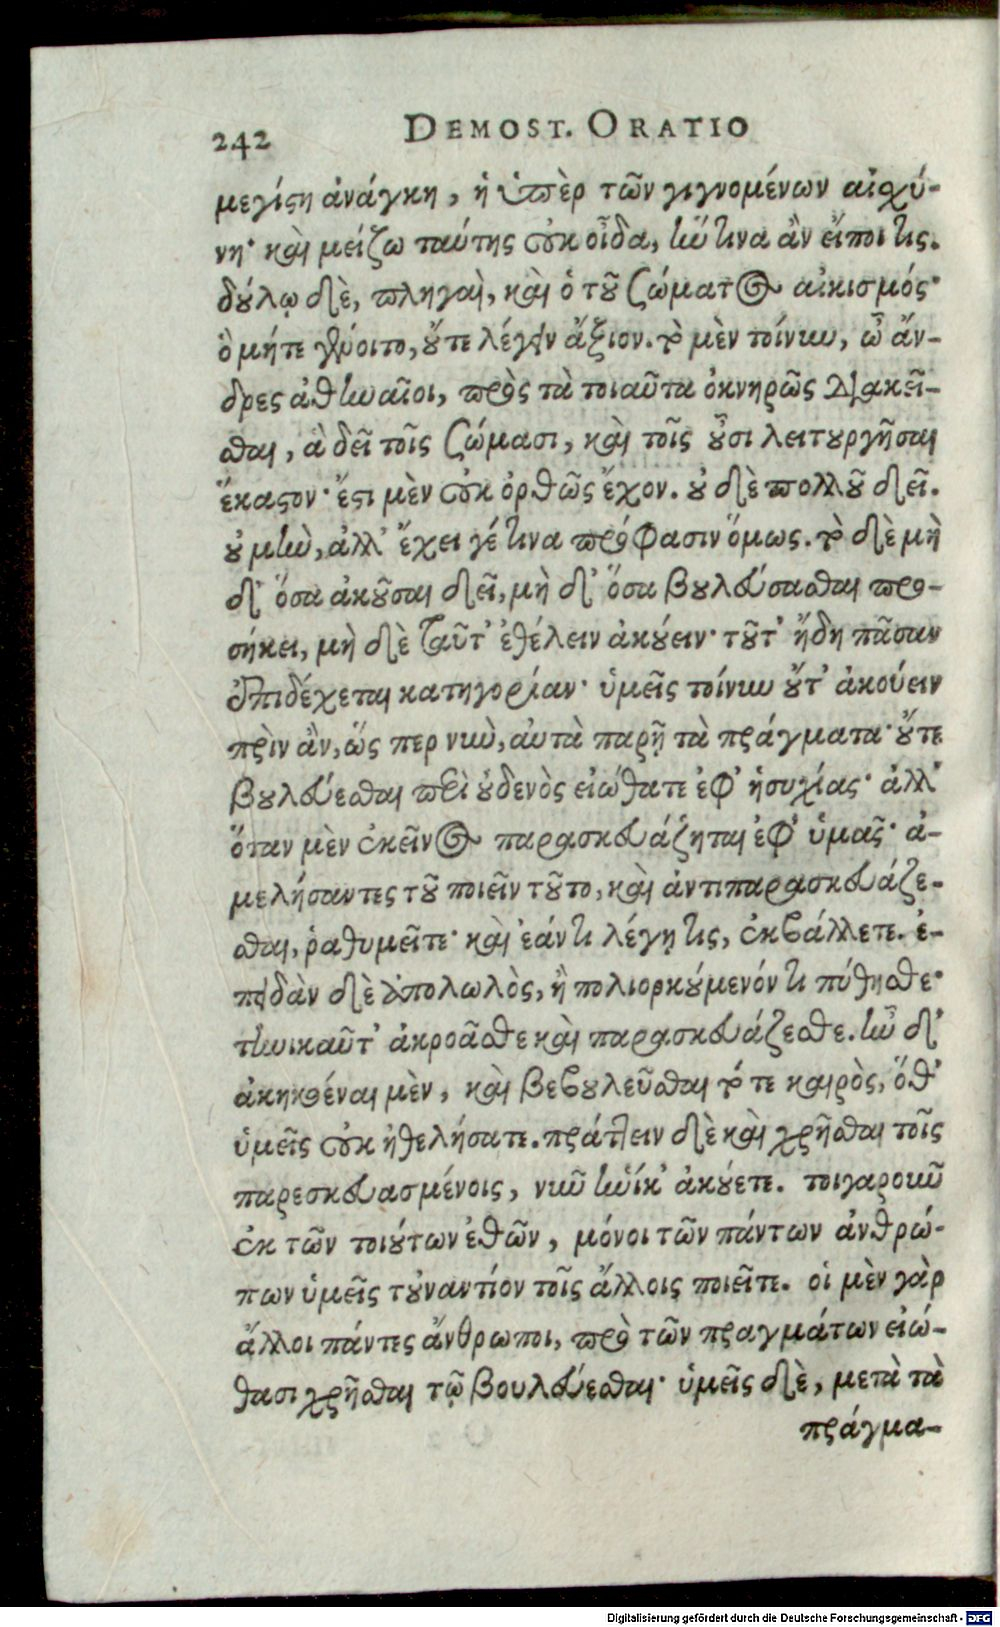 242 DEMOST. ORATIO
μεγίστη ἀνάγκη, ἡ ὑπὲρ τῶν γιγνομένων αἰσχύ-
νη· καὶ μείζω ταύτης οὐκ οἶδα, ἥντινα ἂν εἴποι τις.
δούλῳ δὲ, πληγαὶ, καὶ ὁ τοῦ σώματος αἰκισμός·
ὃ μήτε γένοιτο, οὔτε λέγειν ἄξιον. τὸ μὲν τοίνυν, ὦ ἄν-
δρες ἀθηναῖοι, πρὸς τὰ τοιαῦτα ὀκνηρῶς διακεῖ-
σθαι, ἃ δεῖ τοῖς σώμασι, καὶ τοῖς οὖσι λειτουργῆσαι
ἕκαστον· ἔστι μὲν οὐκ ὀρθῶς ἔχον. οὐ δὲ πολλοῦ δεῖ.
οὐ μὴν, ἀλλ' ἔχει γέ τινα πρόφασιν ὅμως. τὸ δὲ μὴ
δ' ὅσα ἀκοῦσαι δεῖ, μὴ δ' ὅσα βουλεύσασθαι προ-
σήκει, μὴ δὲ ταῦτ' ἐθέλειν ἀκούειν· τοῦτ' ἤδη πᾶσαν
ἐπιδέχεται κατηγορίαν· ὑμεῖς τοίνυν οὔτ' ἀκούειν
πρὶν ἂν, ὥς περ νυὺ, αὐτὰ παρῇ τὰ πράγματα· οὔτε
βουλεύεσθαι περὶ οὐδενὸς εἰώθατε ἐφ' ἡσυχίας· ἀλλ'
ὅταν μὲν ἐκεῖνος παρασκευάζηται ἐφ' ὑμᾶς· ἀ-
μελήσαντες τοῦ ποιεῖν τοῦτο, καὶ ἀντιπαρασκευάζε-
σθαι, ῥαθυμεῖτε· καὶ ἐάν τι λέγῃ τις, ἐκβάλλετε. ἐ-
πειδὰν δὲ ἀπολωλὸς, ἢ πολιορκούμενόν τι πύθησθε·
τηνικαῦτ' ἀκροᾶσθε καὶ παρασκευάζεσθε. ἦν δ'
ἀκηκοέναι μὲν, καὶ βεβουλεῦσθαι τότε καιρὸς, ὅθ'
ὑμεῖς οὐκ ἠθελήσατε. πράττειν δὲ καὶ χρῆσθαι τοῖς
παρεσκευασμένοις, νῦν ἡνίκ' ἀκούετε. τοιγαροῦν
ἐκ τῶν τοιούτων ἐθῶν, μόνοι τῶν πάντων ἀνθρώ-
πων ὑμεῖς τοὐναντίον τοῖς ἄλλοις ποιεῖτε. οἱ μὲν γὰρ
ἄλλοι πάντες ἄνθρωποι, πρὸ τῶν πραγμάτων εἰώ-
θασι χρῆσθαι τῷ βουλεύεσθαι· ὑμεῖς δὲ, μετὰ τὰ
πράγμα-
Digitalisierung gefördert durch die Deutsche Forschungsgemeinschaft - DFG